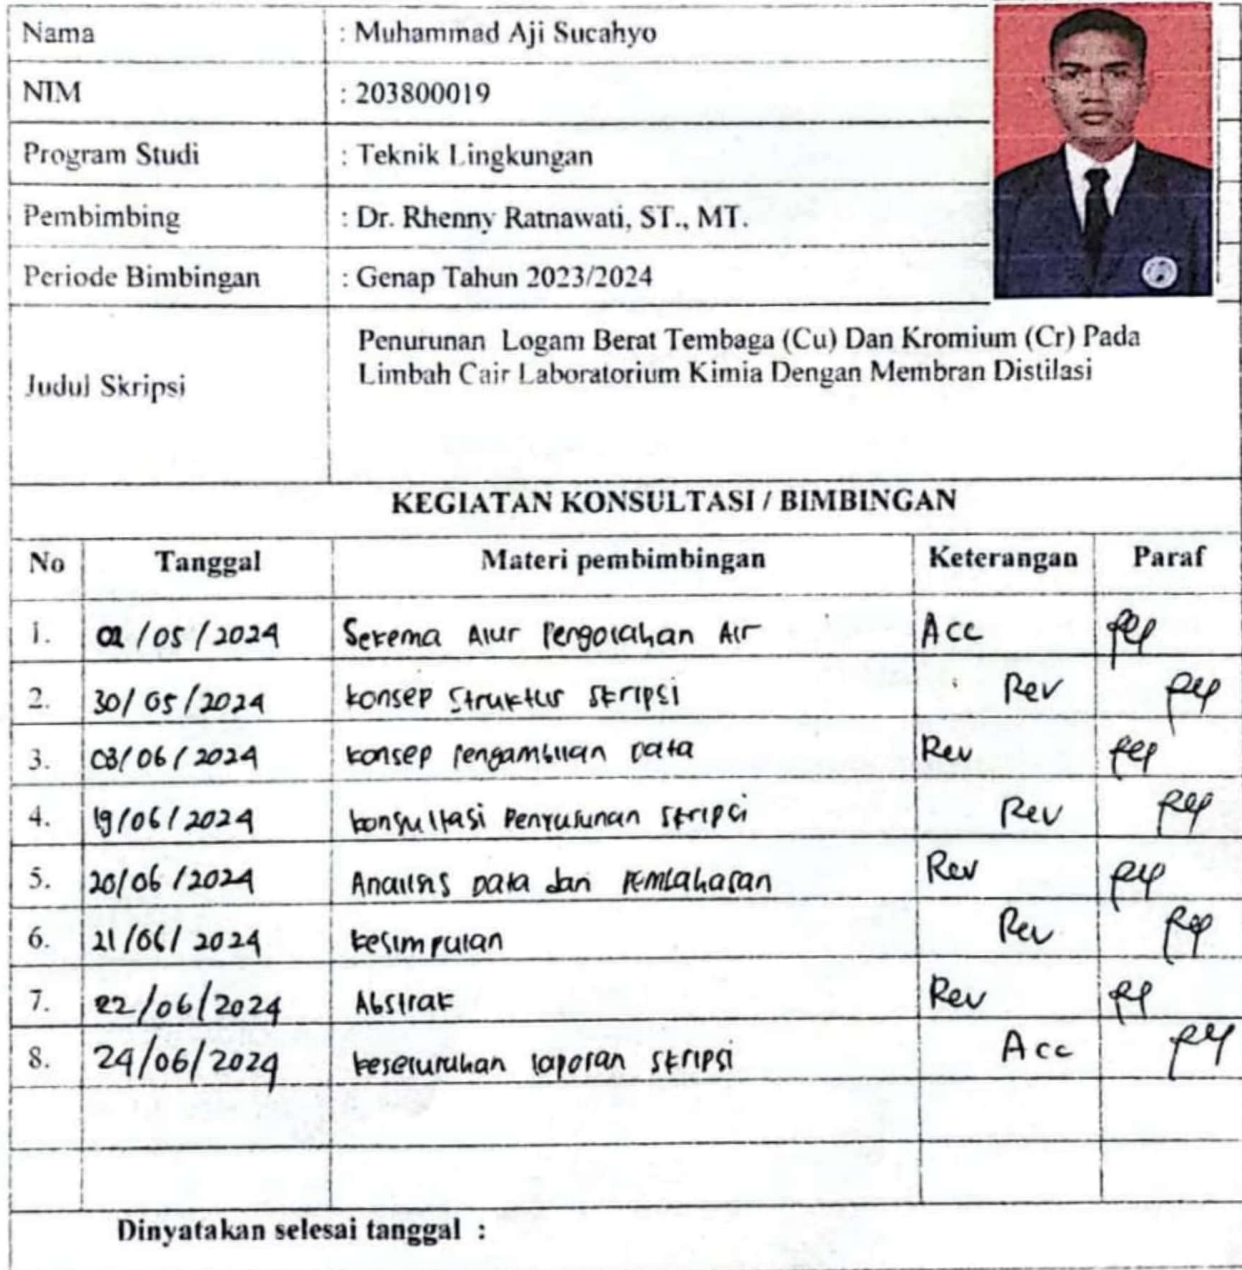 Nama : Muhammad Aji Sucahyo
NIM : 203800019
Program Studi : Teknik Lingkungan
Pembimbing : Dr. Rhenny Ratnawati, ST., MT.
Periode Bimbingan : Genap Tahun 2023/2024
Judul Skripsi
Penurunan Logam Berat Tembaga (Cu) Dan Kromium (Cr) Pada
Limbah Cair Laboratorium Kimia Dengan Membran Distilasi
KEGIATAN KONSULTASI / BIMBINGAN
No Tanggal Materi pembimbingan Keterangan Paraf
1. /05/2024 Serema Alur Pengolahan Air Acc
2. 30/05/2024 konsep Struktur skripsi Rev
3. 03/06/2024 konsep Pengambilan Data Rev
4. 19/06/2024 konsultasi Penyusunan skripsi Rev
5. 20/06/2024 Analisis Data dan Pembahasan Rev
6. 21/06/2024 kesimpulan Rev
7. 22/06/2024 Abstrak Rev
8. 24/06/2024 keseluruhan laporan skripsi Acc
Dinyatakan selesai tanggal :